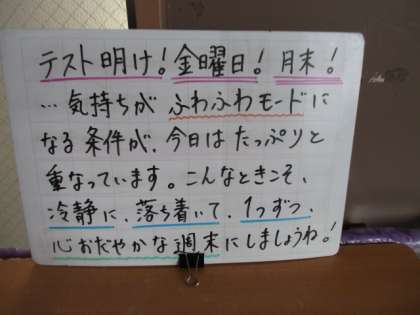 テスト明け！金曜日！月末！
…気持ちが ふわふわモードに
なる条件が、今日はたっぷりと
重なっています。こんなときこそ、
冷静に、落ち着いて、1つずつ、
心おだやかな週末にしましょうね！